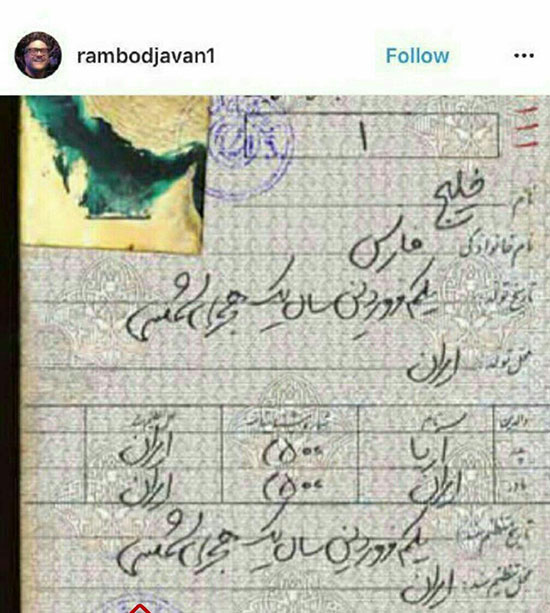 rambodjavan1 Follow
۱
نام خلیج
نام خانوادگی فارس
تاریخ تولد: یکم فروردین سال یک هجری شمسی
محل تولد: ایران
والدین نام شماره شناسنامه
پدر آریا ۲۵۰۰ ایران
مادر ایران ۲۵۰۰ ایران
تاریخ تنظیم سند: یکم فروردین سال یک هجری شمسی
محل تنظیم سند: ایران